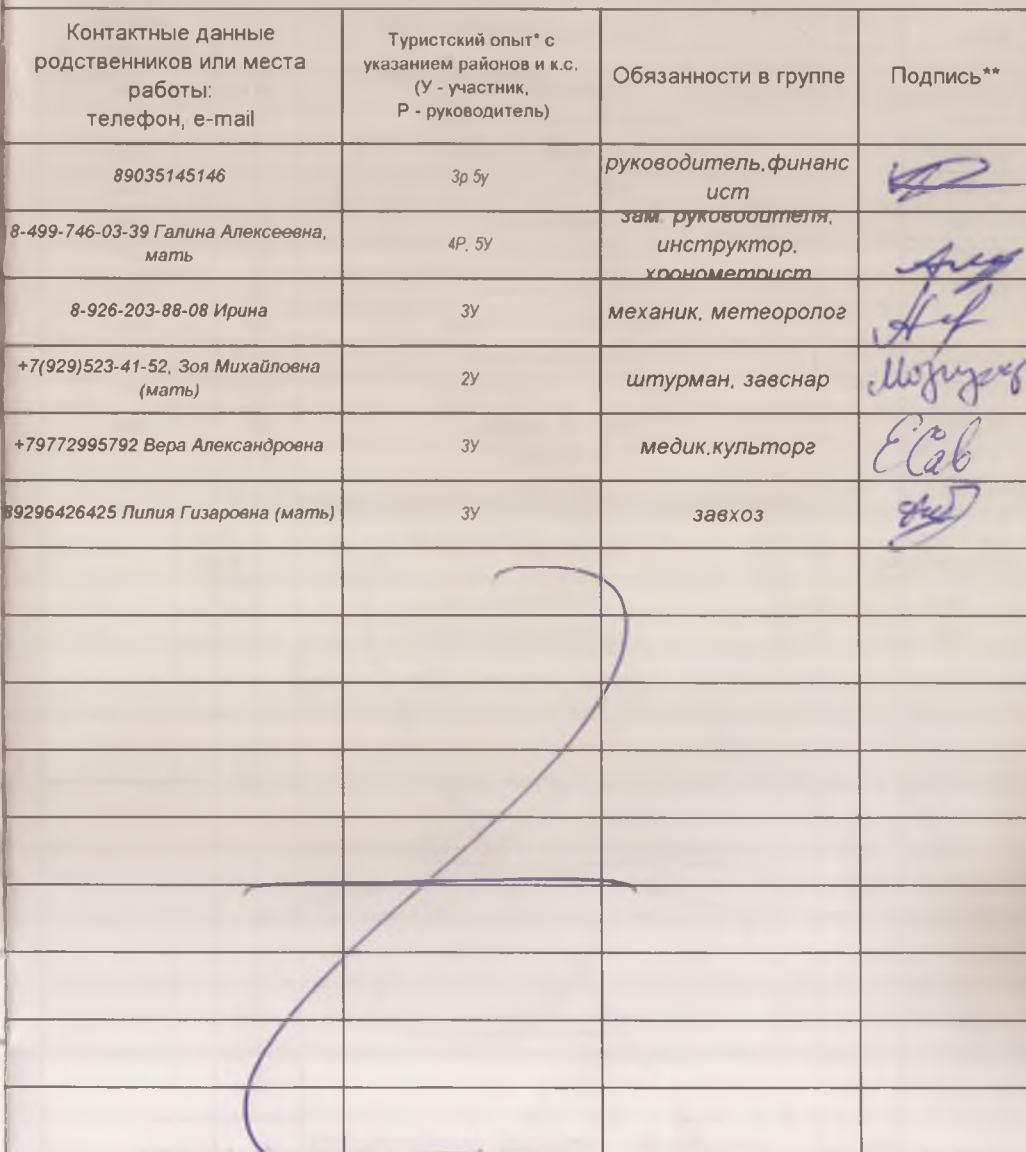 Контактные данные
родственников или места
работы:
телефон, e-mail
Туристский опыт* с
указанием районов и к.с.
(У - участник,
Р - руководитель)
Обязанности в группе
Подпись**
89035145146
3р 5у
руководитель,финанс
ист
8-499-746-03-39 Галина Алексеевна,
мать
4Р, 5У
зам. руководителя,
инструктор,
хронометрист
8-926-203-88-08 Ирина
3У
механик, метеоролог
+7(929)523-41-52, Зоя Михайловна
(мать)
2У
штурман, завснар
+79772995792 Вера Александровна
3У
медик,культорг
ЕСав
89296426425 Лилия Гизаровна (мать)
3У
завхоз